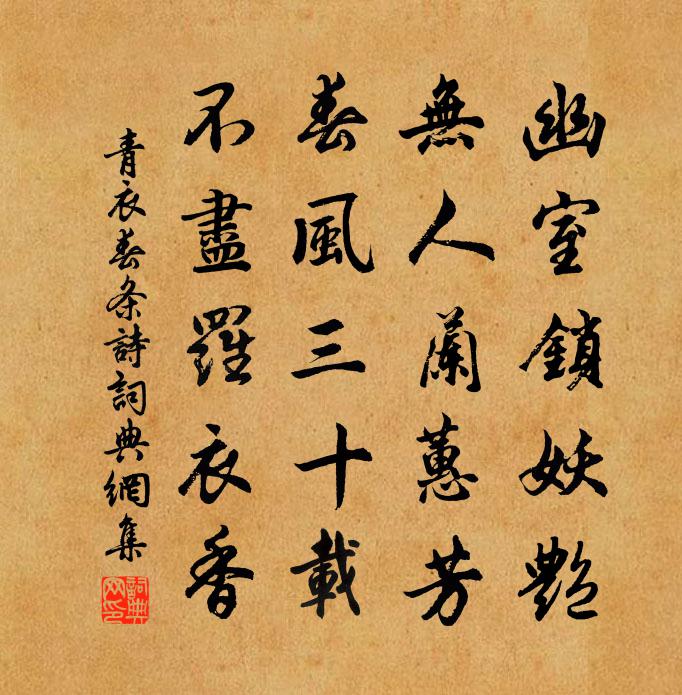 幽室鎖妖艷
無人蘭蕙芳
春風三十載
不盡羅衣香
青衣春条詩詞典網集
詞典網印